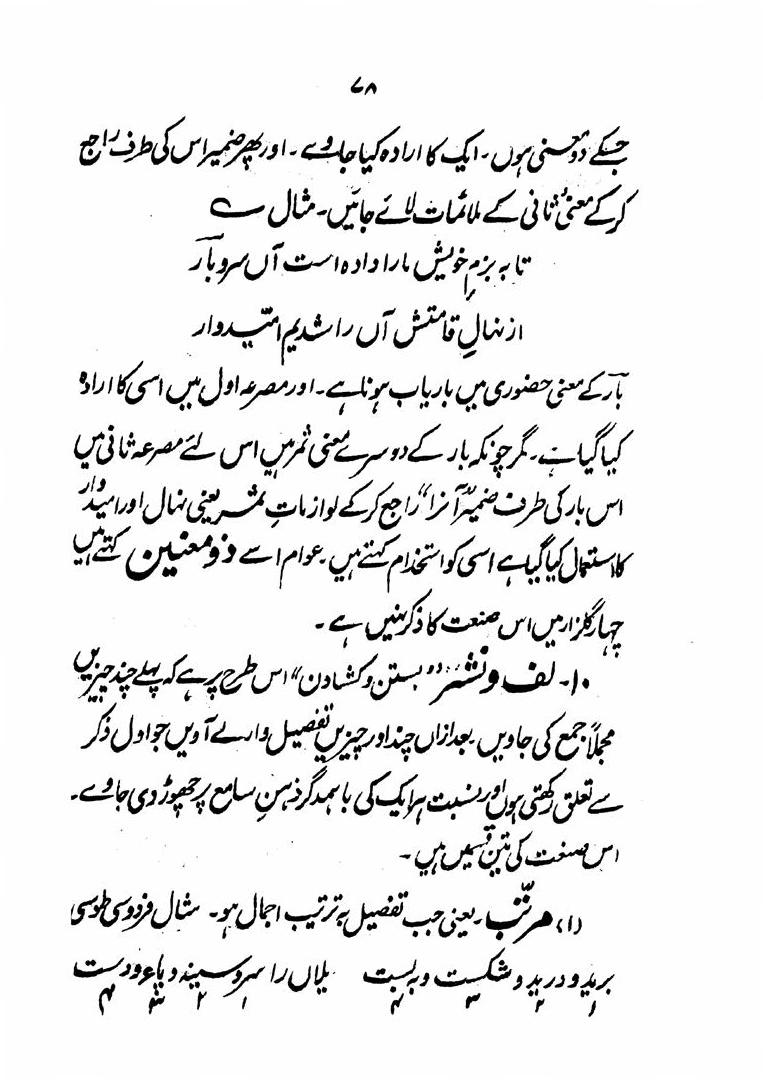 ۷۸
جسکے دو معنی ہوں۔ ایک کا ارادہ کیا جاوے۔ اور پھر ضمیر اس کی طرف راجع
کر کے معنیٔ ثانی کے ملائمات لائے جائیں۔ مثال ؎
تا بہ بزمِ خویش مارا دادہ است آں سرو بار
از نہالِ قامتش آں را شدیم امیّدوار
بار کے معنی حضوری میں باریاب ہونا ہے۔ اور مصرعہ اول میں اسی کا ارادہ
کیا گیا ہے۔ مگر چونکہ بار کے دوسرے معنی ثمر ہیں اس لئے مصرعہ ثانی میں
اس بار کی طرف ضمیر "آنرا" راجع کر کے لوازماتِ ثمر یعنی نہال اور امیدوار
کا استعمال کیا گیا ہے اسی کو استخدام کہتے ہیں۔ عوام اسے ذو معنین کہتے ہیں
چہار گلزار میں اس صنعت کا ذکر نہیں ہے۔
۱۰۔ لف و نشر "بستن و کشادن" اس طرح پر ہے کہ پہلے چند چیزیں
مجملاً جمع کی جاویں۔ بعد ازاں چند اور چیزیں تفصیل وار لے آویں جو اول ذکر
سے تعلق رکھتی ہوں اور نسبت ہر ایک کی باہمدگر ذہنِ سامع پر چھوڑ دی جاوے۔
اس صنعت کی تین قسمیں ہیں۔
(۱) مرتّب۔ یعنی جب تفصیل بہ ترتیب اجمال ہو۔ مثال فردوسی طوسی
برید و درید و شکست و بہ بست یلاں را سر و سینہ و پاء و دست
۱ ۲ ۳ ۴ ۱ ۲ ۳ ۴